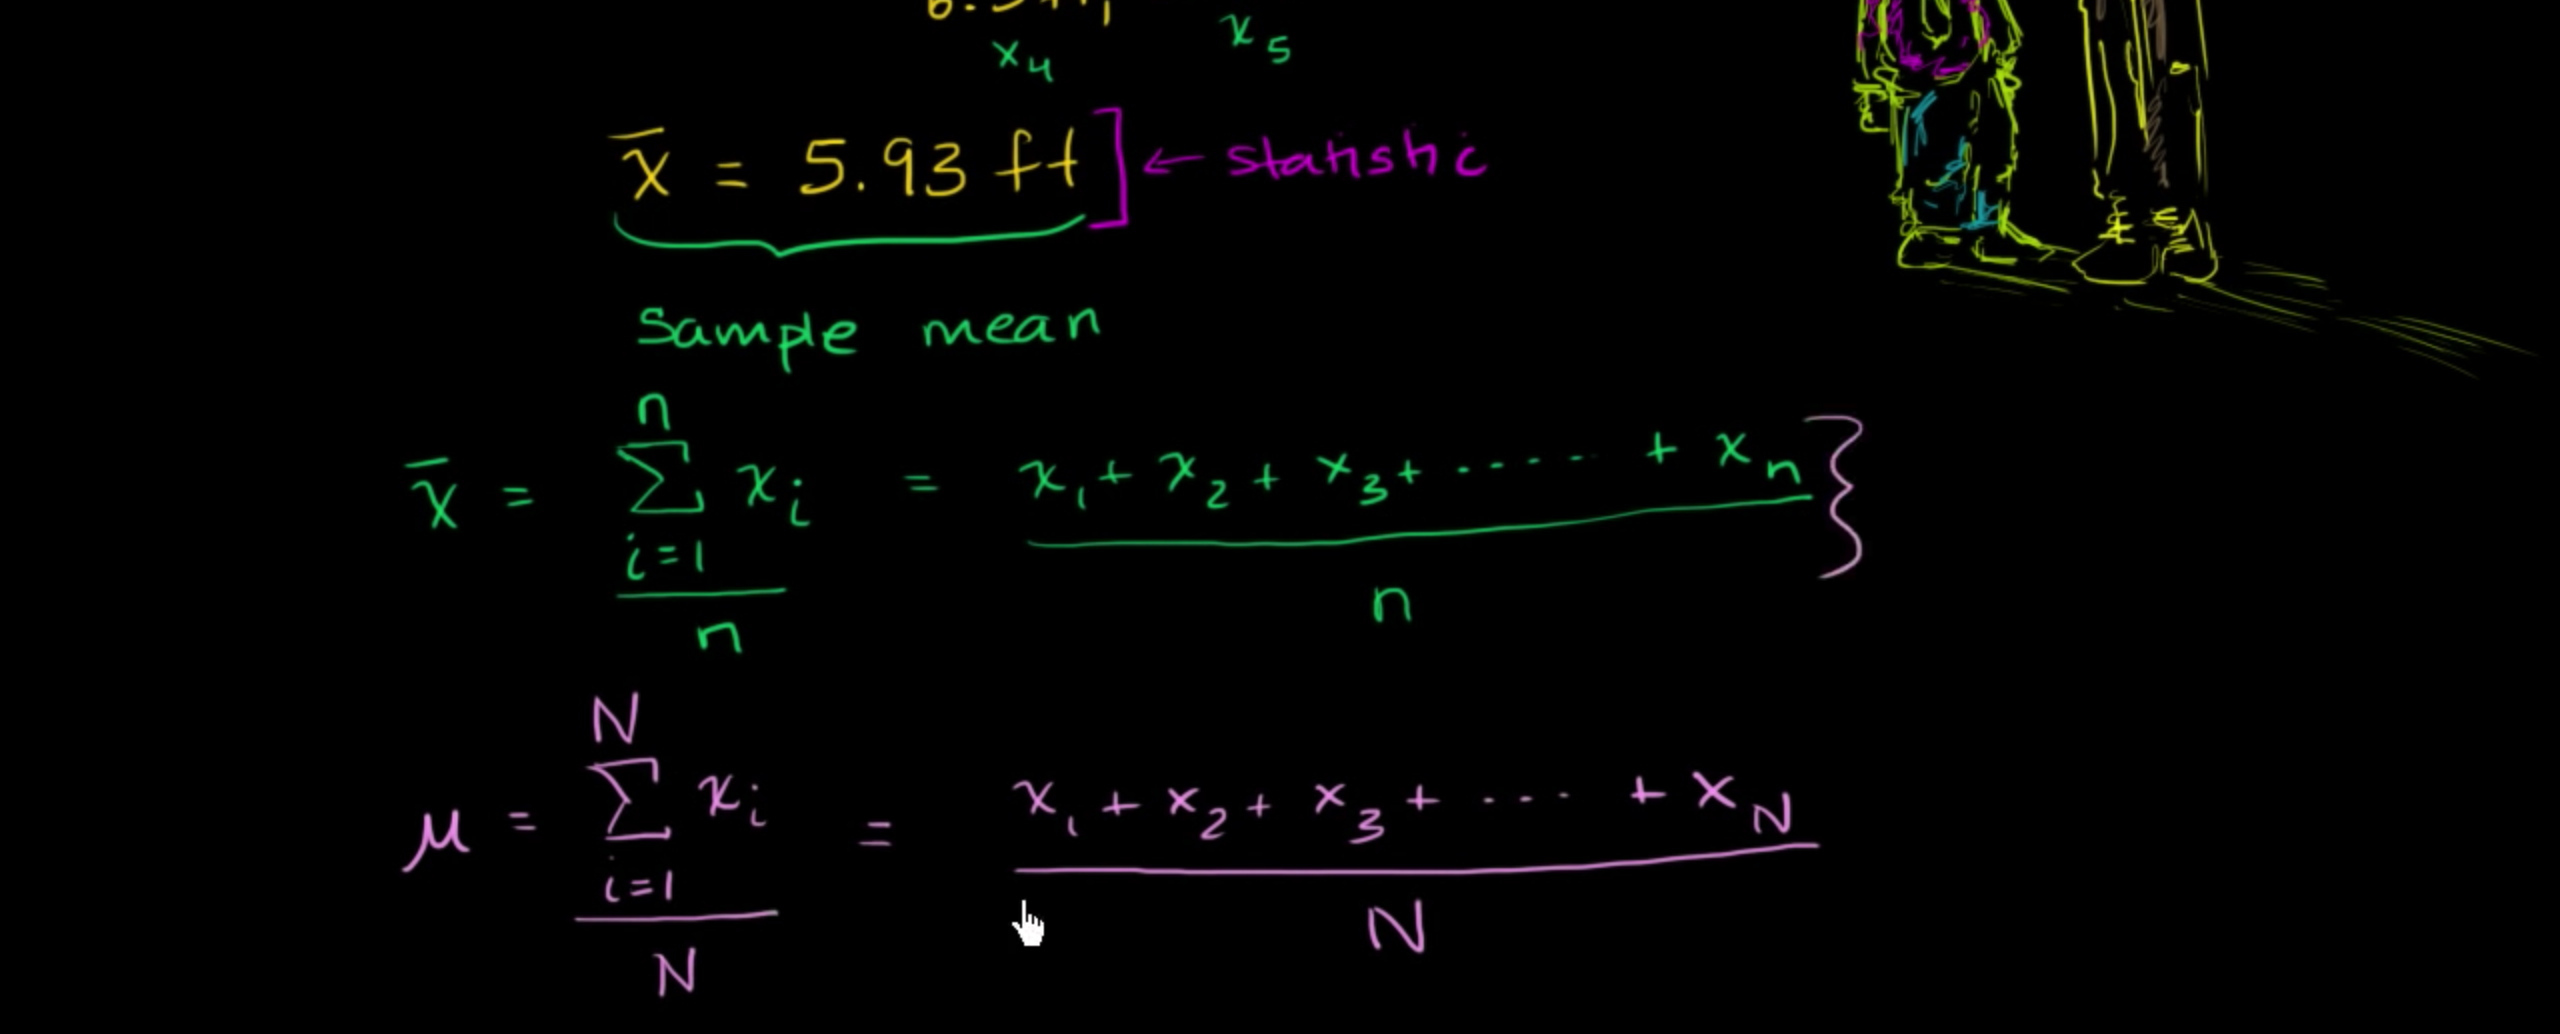 x₄ x₅
x̄ = 5.93 ft ] ← statistic
Sample mean
x̄ = (∑ᵢ₌₁ⁿ xᵢ) / n = (x₁ + x₂ + x₃ + ····· + xₙ) / n }
μ = (∑ᵢ₌₁ᴺ xᵢ) / N = (x₁ + x₂ + x₃ + ···· + x_N) / N